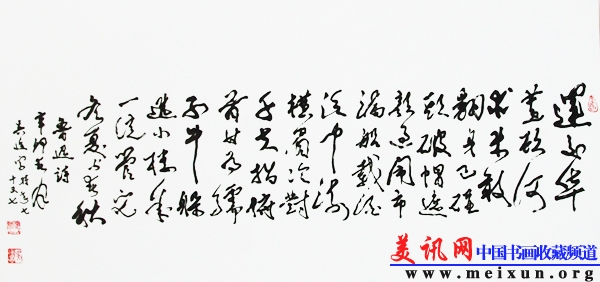 運交華
蓋欲何
求未敢
翻身已碰
頭破帽遮
顏過鬧市
漏船載酒
泛中流
橫眉冷對
千夫指俯
首甘為孺
子牛躲
進小樓成
一統管它
冬夏与春秋
魯迅詩
辛卯
十又七
美讯网 中国书画收藏频道
www.meixun.org